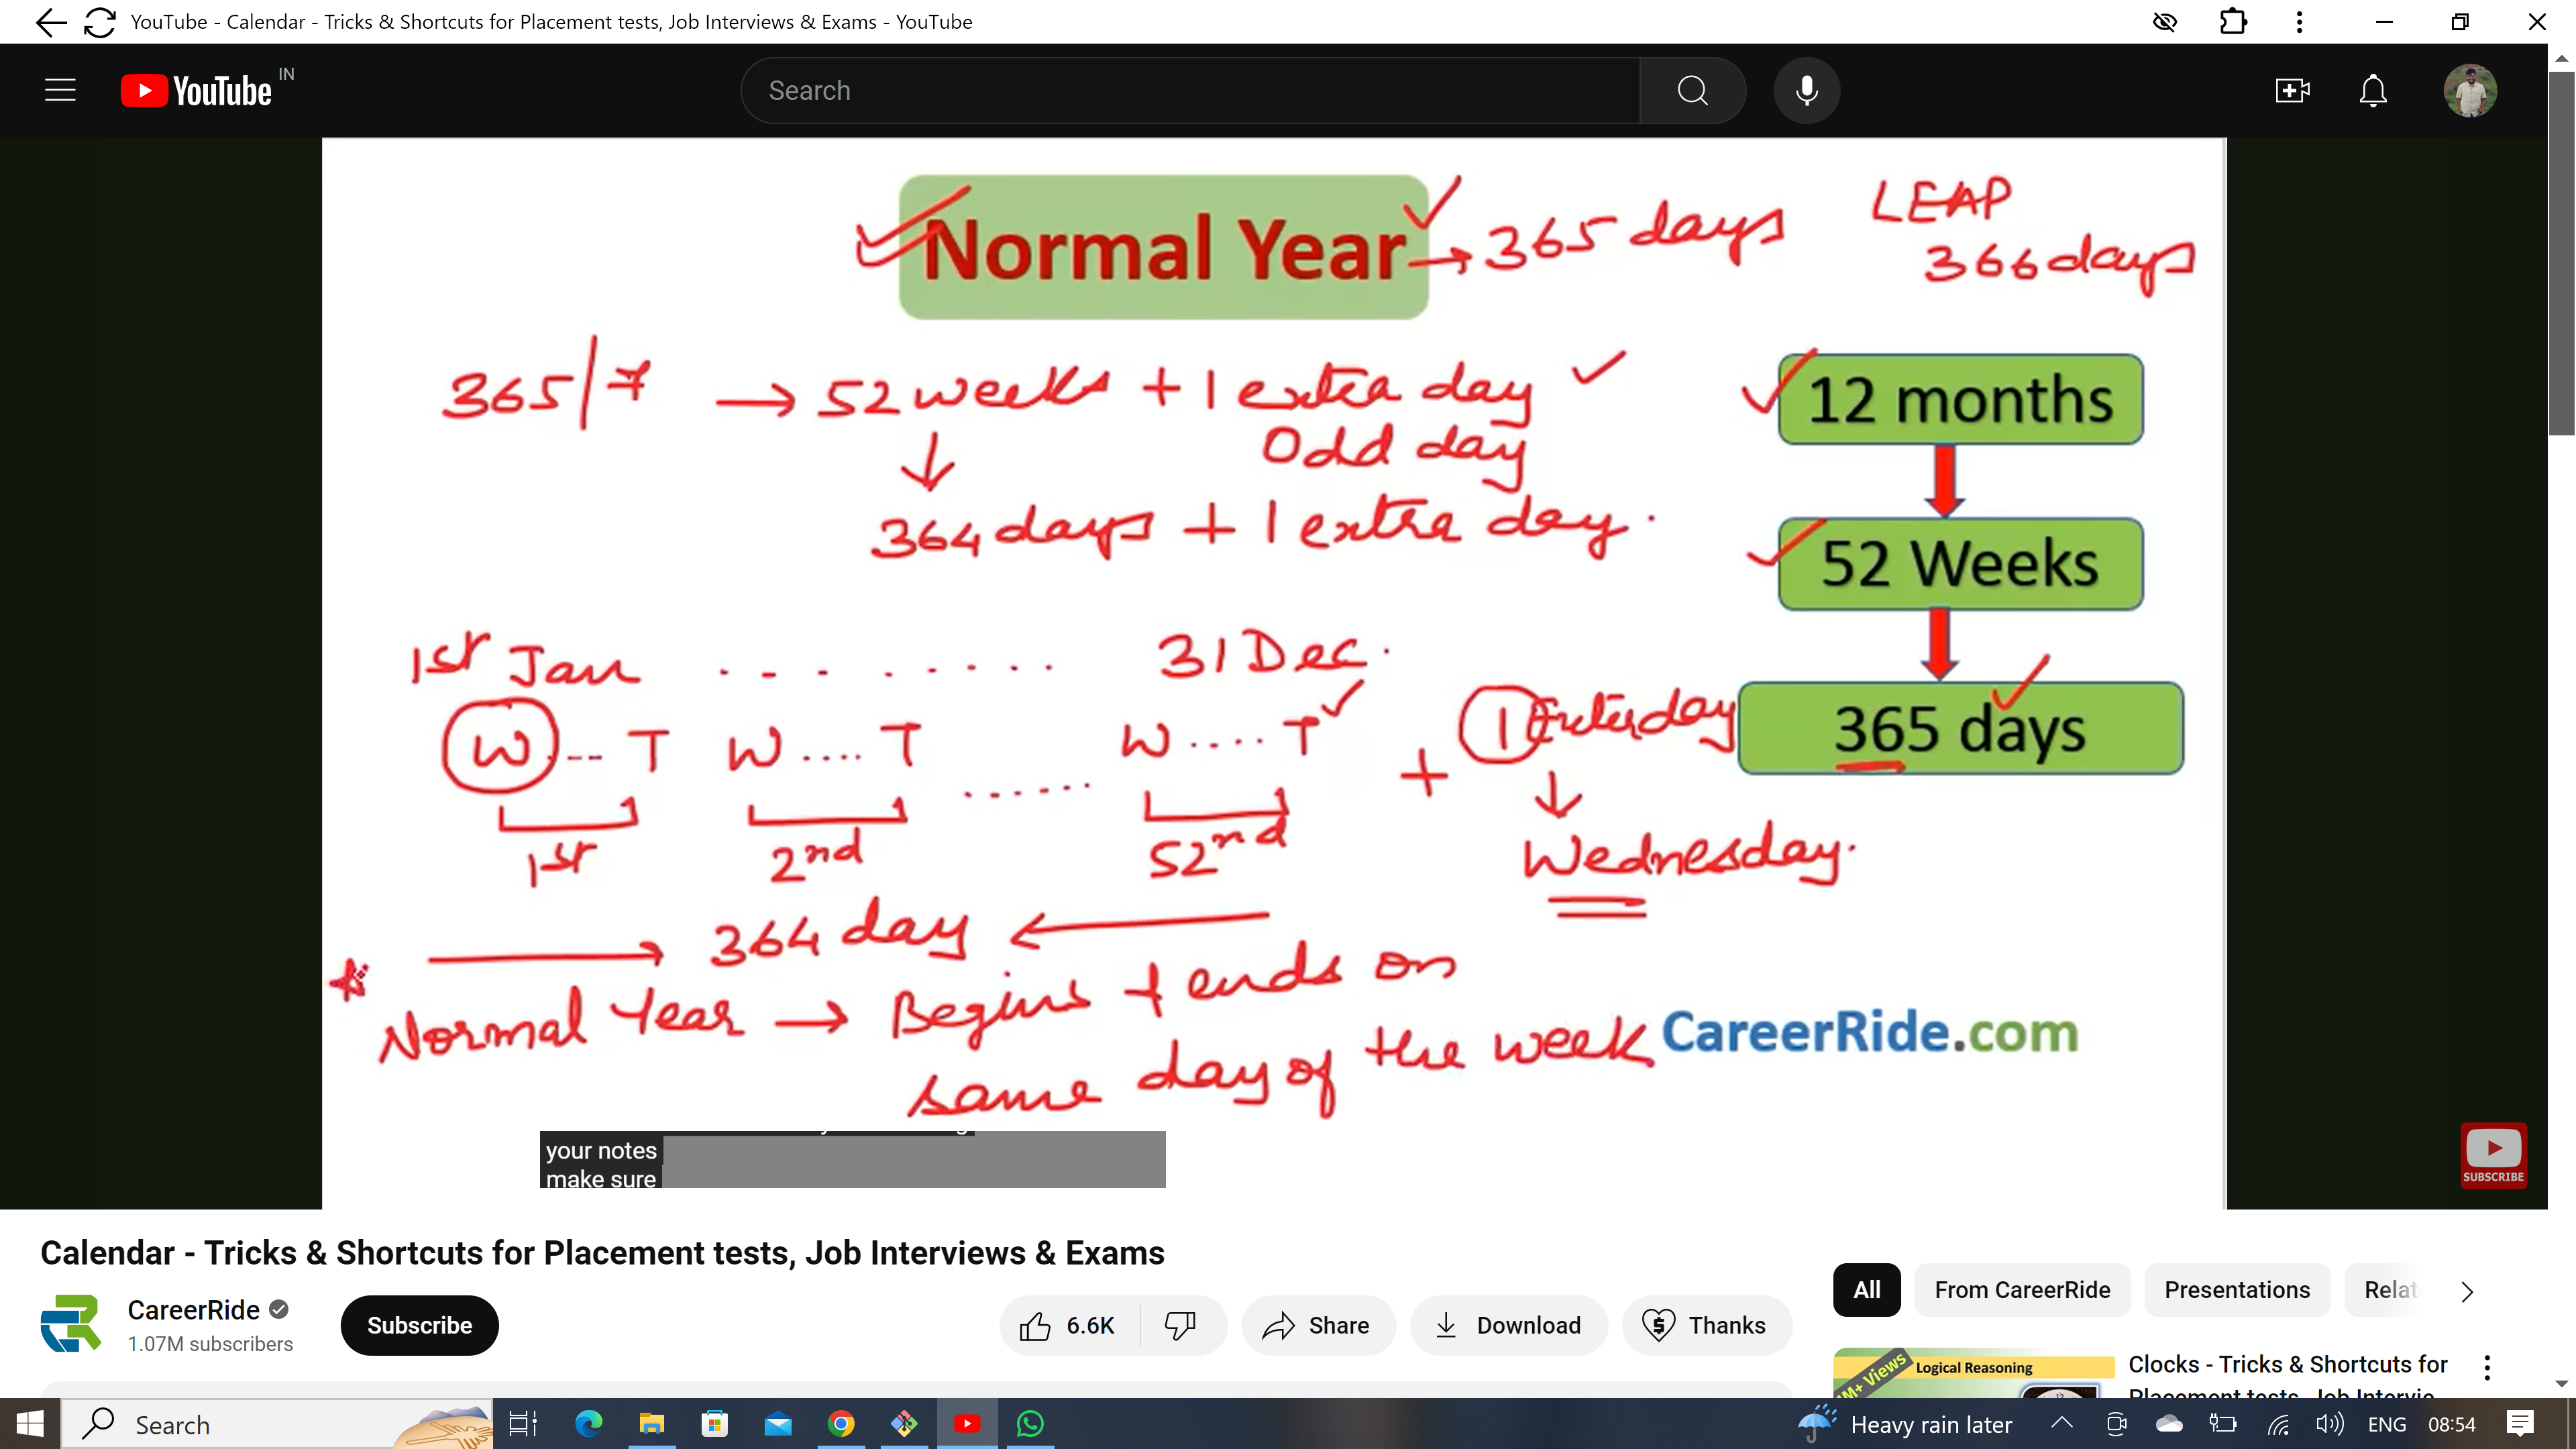 YouTube - Calendar - Tricks & Shortcuts for Placement tests, Job Interviews & Exams - YouTube
YouTube IN
Search
Normal Year → 365 days
LEAP
366 days
365/7 → 52 weeks + 1 extra day
Odd day
364 days + 1 extra day.
12 months
52 Weeks
365 days
1st Jan - - - - - - - - 31 Dec.
W .... T W .... T ...... W ..... T + 1 Extra day
1st 2nd 52nd
Wednesday.
→ 364 day ←
* Normal Year → Begins + ends on
same day of the week.
CareerRide.com
your notes
make sure
SUBSCRIBE
Calendar - Tricks & Shortcuts for Placement tests, Job Interviews & Exams
CareerRide
1.07M subscribers
Subscribe
6.6K
Share
Download
Thanks
All
From CareerRide
Presentations
Relat
M+ Views
Logical Reasoning
Clocks - Tricks & Shortcuts for
Placement tests, Job Intervie
Search
Heavy rain later
ENG
08:54